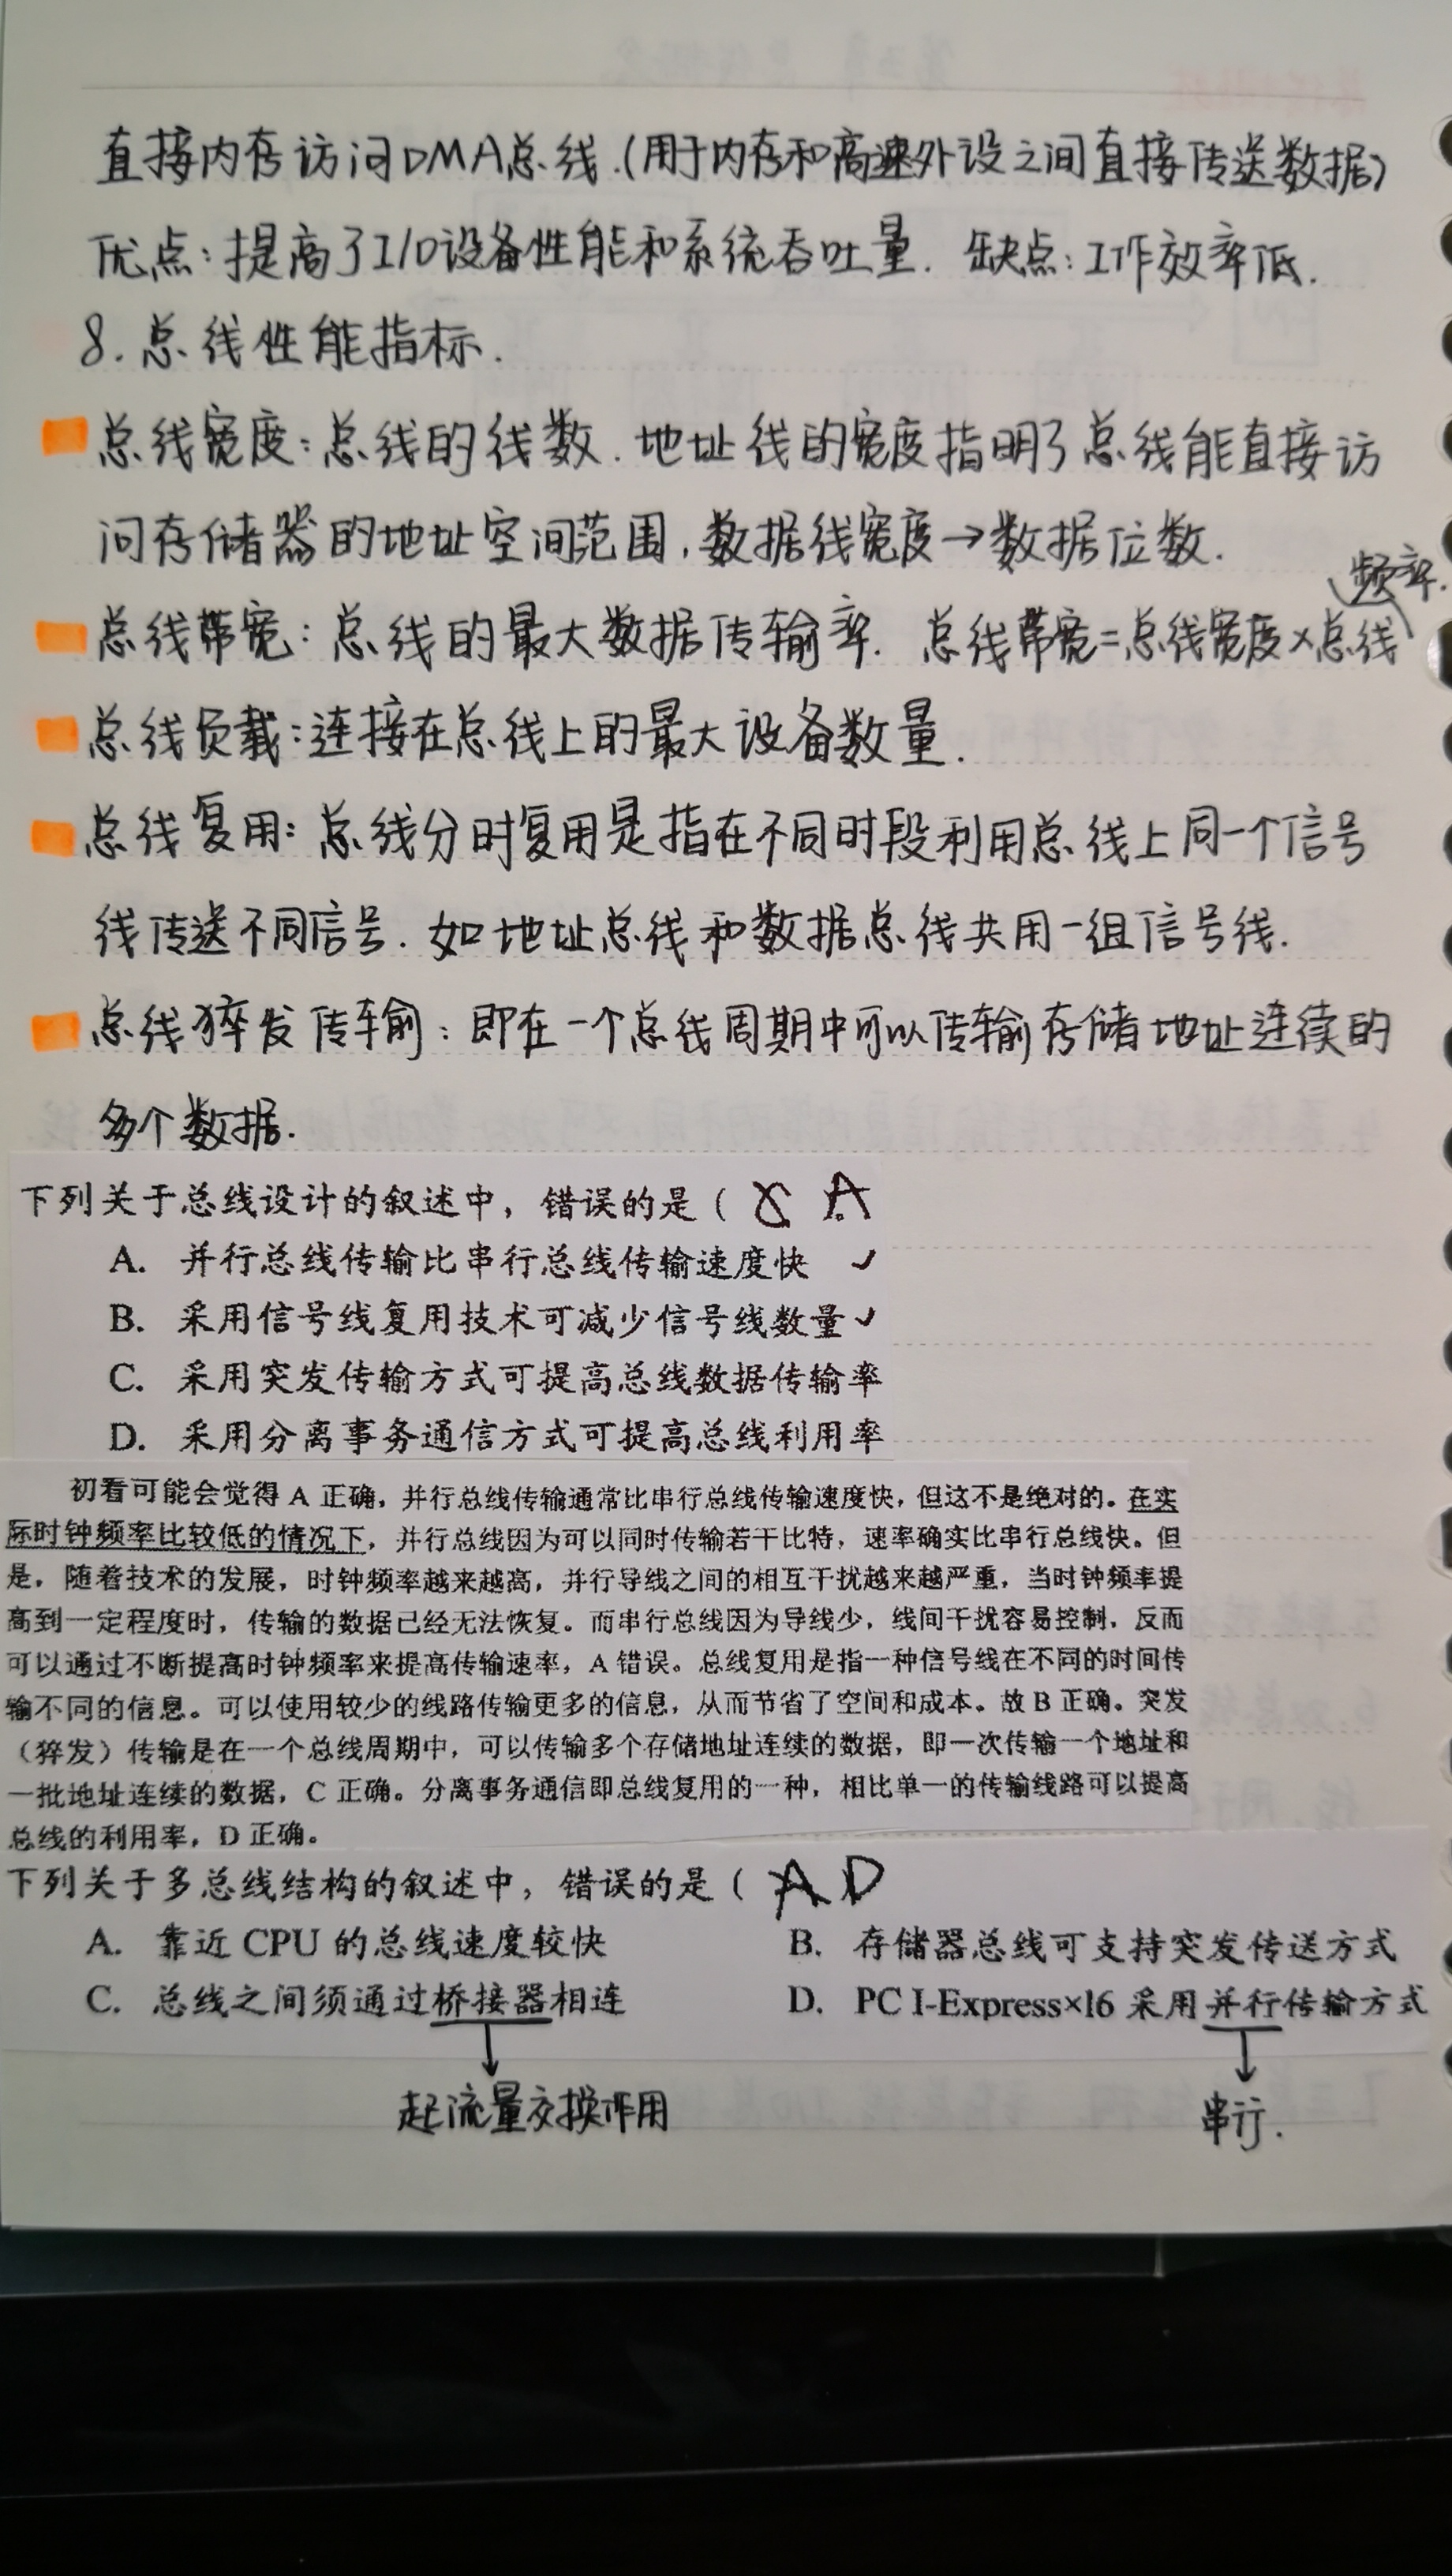 直接内存访问DMA总线.(用于内存和高速外设之间直接传送数据)
优点:提高了I/O设备性能和系统吞吐量. 缺点:工作效率低.
8.总线性能指标.
总线宽度:总线的线数.地址线的宽度指明了总线能直接访
问存储器的地址空间范围,数据线宽度→数据位数.
频率.
总线带宽:总线的最大数据传输率. 总线带宽=总线宽度×总线
总线负载:连接在总线上的最大设备数量.
总线复用:总线分时复用是指在不同时段利用总线上同一个信号
线传送不同信号.如地址总线和数据总线共用一组信号线.
总线猝发传输:即在一个总线周期中可以传输存储地址连续的
多个数据.
下列关于总线设计的叙述中，错误的是( A
A. 并行总线传输比串行总线传输速度快 ✓
B. 采用信号线复用技术可减少信号线数量 ✓
C. 采用突发传输方式可提高总线数据传输率
D. 采用分离事务通信方式可提高总线利用率
初看可能会觉得 A 正确，并行总线传输通常比串行总线传输速度快，但这不是绝对的。在实
际时钟频率比较低的情况下，并行总线因为可以同时传输若干比特，速率确实比串行总线快。但
是，随着技术的发展，时钟频率越来越高，并行导线之间的相互干扰越来越严重，当时钟频率提
高到一定程度时，传输的数据已经无法恢复。而串行总线因为导线少，线间干扰容易控制，反而
可以通过不断提高时钟频率来提高传输速率，A 错误。总线复用是指一种信号线在不同的时间传
输不同的信息。可以使用较少的线路传输更多的信息，从而节省了空间和成本。故 B 正确。突发
（猝发）传输是在一个总线周期中，可以传输多个存储地址连续的数据，即一次传输一个地址和
一批地址连续的数据，C 正确。分离事务通信即总线复用的一种，相比单一的传输线路可以提高
总线的利用率，D 正确。
下列关于多总线结构的叙述中，错误的是( A D
A. 靠近 CPU 的总线速度较快 B. 存储器总线可支持突发传送方式
C. 总线之间须通过桥接器相连 D. PC I-Express×16 采用并行传输方式
起流量交换作用 串行.